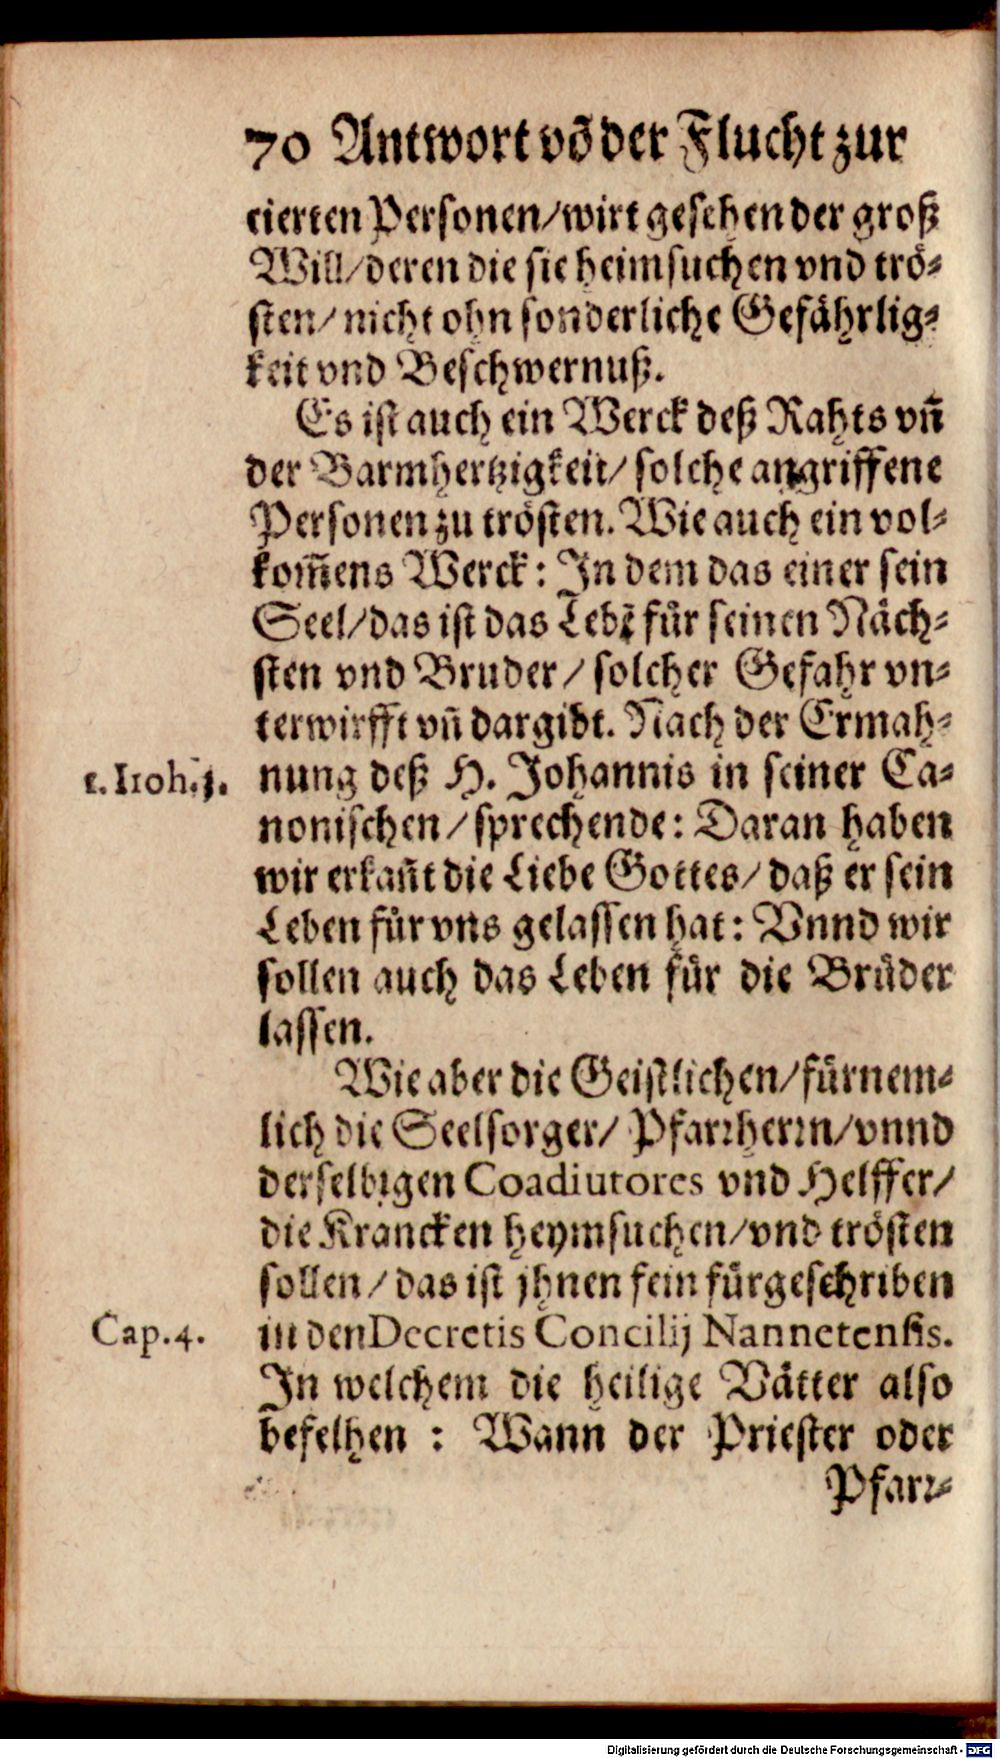 70 Antwort võ der Flucht zur
cierten Personen/wirt gesehen der groß
Will/deren die sie heimsuchen vnd trö-
sten/nicht ohn sonderliche Gefährlig-
keit vnd Beschwernuß.
Es ist auch ein Werck deß Rahts vñ
der Barmhertzigkeit/solche angriffene
Personen zu trösten. Wie auch ein vol-
kom̃ens Werck: In dem das einer sein
Seel/das ist das Lebẽ für seinen Näch-
sten vnd Bruder/solcher Gefahr vn-
terwirfft vñ dargibt. Nach der Ermah-
1. Ioh. 3.
nung deß H. Johannis in seiner Ca-
nonischen/sprechende: Daran haben
wir erkañt die Liebe Gottes/daß er sein
Leben für vns gelassen hat: Vnnd wir
sollen auch das Leben für die Brüder
lassen.
Wie aber die Geistlichen/fürnem-
lich die Seelsorger/Pfarꝛherꝛn/vnnd
derselbigen Coadiutores vnd Helffer/
die Krancken heymsuchen/vnd trösten
sollen/das ist jhnen fein fürgeschriben
Cap. 4.
in den Decretis Concilij Nannetensis.
In welchem die heilige Vätter also
befelhen : Wann der Priester oder
Pfarꝛ-
Digitalisierung gefördert durch die Deutsche Forschungsgemeinschaft - DFG